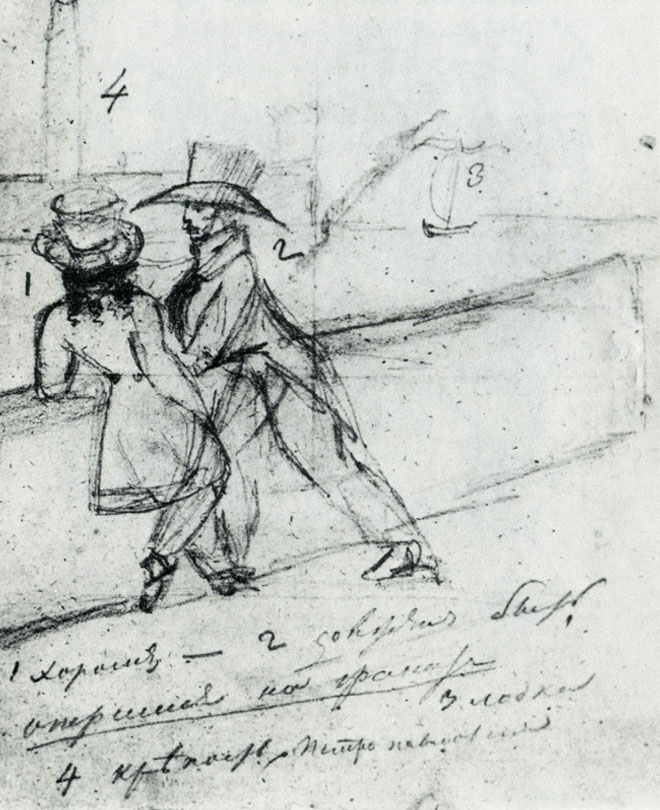 4
3
2
1
1 хорошъ — 2 долженъ быть
опершися на гранитъ
3 лодка
4 крѣпость Петропавловская